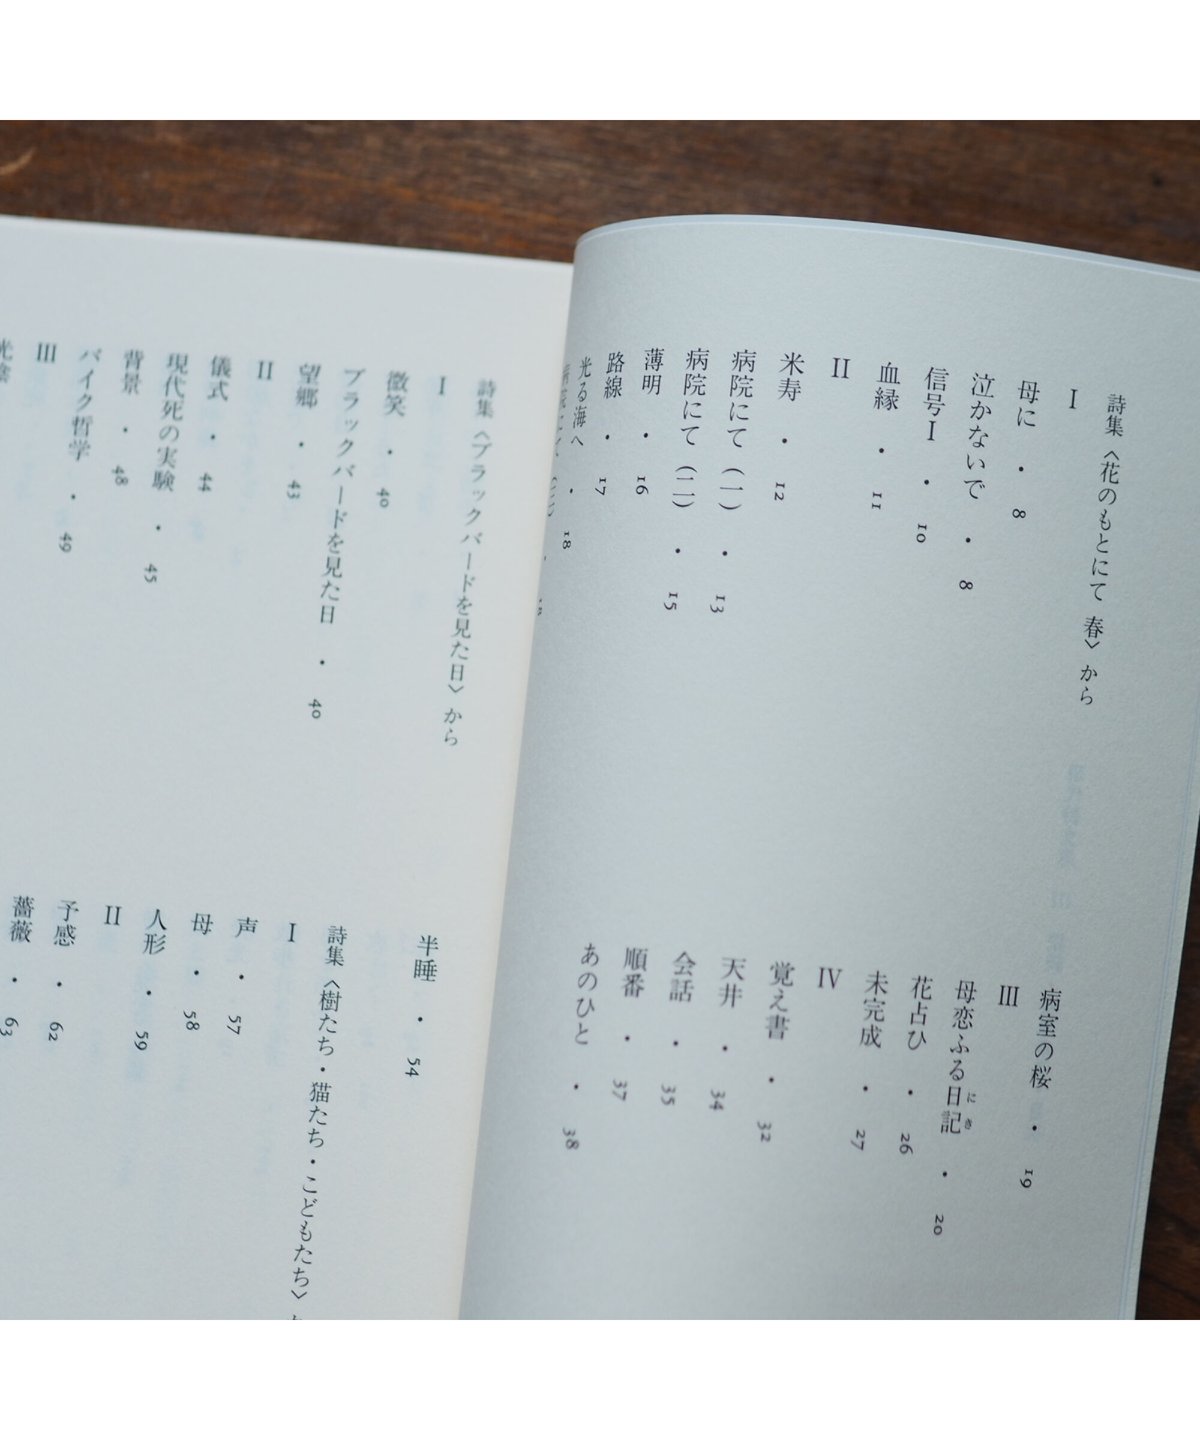 詩集〈花のもとにて 春〉から
I
母に・8
泣かないで・8
信号I・10
血縁・11
II
米寿・12
病院にて(一)・13
病院にて(二)・15
薄明・16
路線・17
光る海へ・18
病室の桜・19
III
母恋ふる日記・20
にき
花占ひ・26
未完成・27
IV
覚え書・32
天井・34
会話・35
順番・37
あのひと・38
詩集〈ブラックバードを見た日〉から
I
微笑・40
ブラックバードを見た日・40
望郷・43
II
儀式・44
現代死の実験・45
背景・48
バイク哲学・49
III
半睡・54
詩集〈樹たち・猫たち・こどもたち〉
I
声・57
母・58
人形・59
II
予感・62
薔薇・63